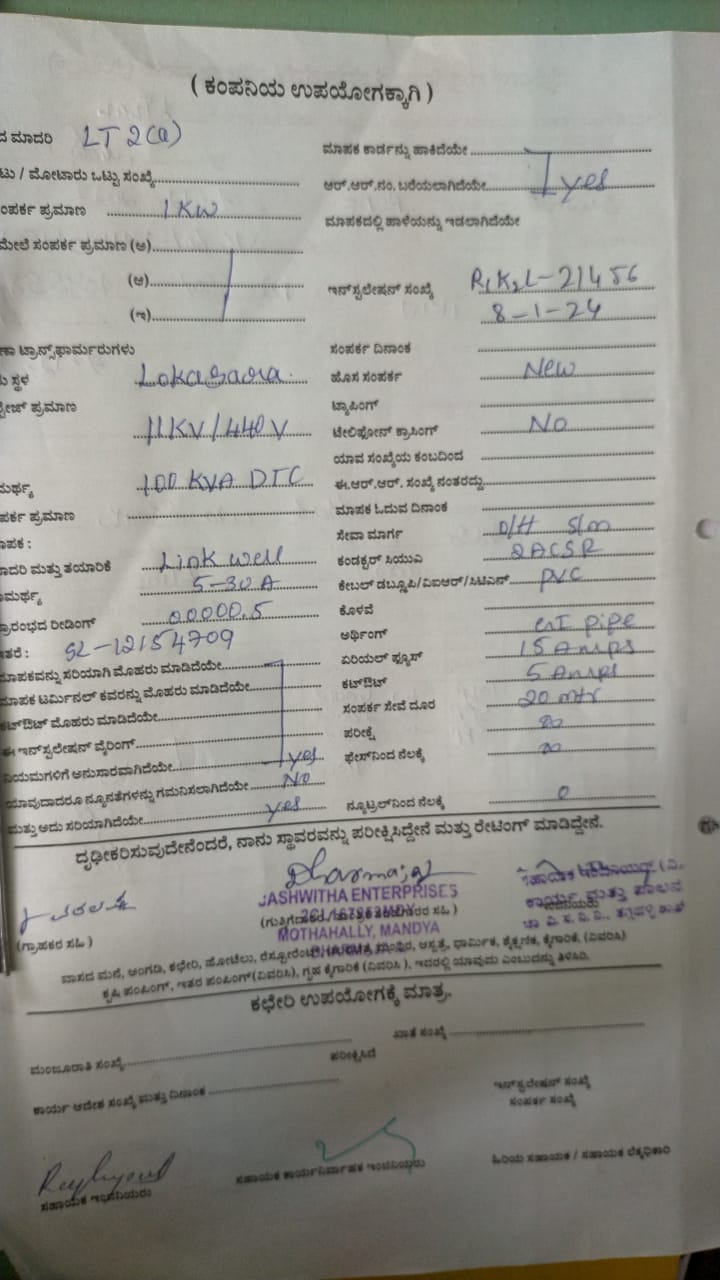 ( ಕಂಪನಿಯ ಉಪಯೋಗಕ್ಕಾಗಿ )
ದ ಮಾದರಿ LT 2(a)
ಟು / ಮೋಟಾರು ಒಟ್ಟು ಸಂಖ್ಯೆ
ಸಂಪರ್ಕ ಪ್ರಮಾಣ 1KW
ಮೇಲೆ ಸಂಪರ್ಕ ಪ್ರಮಾಣ (ಅ)
(ಆ)
(ಇ)
ಣಾ ಟ್ರಾನ್ಸ್‌ಫಾರ್ಮರುಗಳು
ಸ್ಥಳ Lokasara
ಪ್ರಮಾಣ
11KV/440V
ಮರ್ಥ್ಯ 100 KVA DTC
ಪರ್ಕ ಪ್ರಮಾಣ
ಾಪಕ :
ಾದರಿ ಮತ್ತು ತಯಾರಿಕೆ Link well
ಾಮರ್ಥ್ಯ 5-30 A
ಾರಂಭದ ರೀಡಿಂಗ್ 00000.5
ತರೆ : SL-12154709
ಮಾಪಕವನ್ನು ಸರಿಯಾಗಿ ಮೊಹರು ಮಾಡಿದೆಯೇ
ಮಾಪಕ ಟರ್ಮಿನಲ್ ಕವರನ್ನು ಮೊಹರು ಮಾಡಿದೆಯೇ
ಕಟ್‌ಔಟ್ ಮೊಹರು ಮಾಡಿದೆಯೇ
ಈ ಇನ್‌ಸ್ಟಲೇಷನ್ ವೈರಿಂಗ್
ನಿಯಮಗಳಿಗೆ ಅನುಸಾರವಾಗಿದೆಯೇ yes
ಯಾವುದಾದರೂ ನ್ಯೂನತೆಗಳನ್ನು ಗಮನಿಸಲಾಗಿದೆಯೇ No
ಮತ್ತು ಅದು ಸರಿಯಾಗಿದೆಯೇ yes
ಮಾಪಕ ಕಾರ್ಡನ್ನು ಹಾಕಿದೆಯೇ
ಆರ್.ಆರ್.ನಂ. ಬರೆಯಲಾಗಿದೆಯೇ yes
ಮಾಪಕದಲ್ಲಿ ಹಾಳೆಯನ್ನು ಇಡಲಾಗಿದೆಯೇ
ಇನ್‌ಸ್ಟಲೇಷನ್ ಸಂಖ್ಯೆ R1K2L-21456
8-1-24
ಸಂಪರ್ಕ ದಿನಾಂಕ
ಹೊಸ ಸಂಪರ್ಕ New
ಟ್ಯಾಪಿಂಗ್
ಟೆಲಿಫೋನ್ ಕ್ರಾಸಿಂಗ್ No
ಯಾವ ಸಂಖ್ಯೆಯ ಕಂಬದಿಂದ
ಈ.ಆರ್.ಆರ್. ಸಂಖ್ಯೆ ನಂತರದ್ದು
ಮಾಪಕ ಓದುವ ದಿನಾಂಕ
ಸೇವಾ ಮಾರ್ಗ O/H S/m
ಕಂಡಕ್ಟರ್ ಸಿಯುವಿ 2ACSR
ಕೇಬಲ್ ಡಬ್ಲೂಪಿ/ವಿಐಆರ್/ಸಿಟಿಎಸ್ PVC
ಕೊಳವೆ
ಅರ್ಥಿಂಗ್ GI pipe
ಏರಿಯಲ್ ಫ್ಯೂಸ್ 15 Amps
ಕಟ್‌ಔಟ್ 5 Amps
ಸಂಪರ್ಕ ಸೇವೆ ದೂರ 20 mtr
ಪರೀಕ್ಷೆ
ಫೇಸ್‌ನಿಂದ ನೆಲಕ್ಕೆ
ನ್ಯೂಟ್ರಲ್‌ನಿಂದ ನೆಲಕ್ಕೆ 0
ದೃಢೀಕರಿಸುವುದೇನೆಂದರೆ, ನಾನು ಸ್ಥಾವರವನ್ನು ಪರೀಕ್ಷಿಸಿದ್ದೇನೆ ಮತ್ತು ರೇಟಿಂಗ್ ಮಾಡಿದ್ದೇನೆ.
JASHWITHA ENTERPRISES
MOTHAHALLY, MANDYA
ಕಾರ್ಯ ಮತ್ತು ಪಾಲನ
(ಗ್ರಾಹಕರ ಸಹಿ )
ವಾಸದ ಮನೆ, ಅಂಗಡಿ, ಕಛೇರಿ, ಹೋಟೆಲು, ಆಸ್ಪತ್ರೆ, ಧಾರ್ಮಿಕ, ಶೈಕ್ಷಣಿಕ, ಕೈಗಾರಿಕೆ, (ವಿವರಿಸಿ)
ಕೃಷಿ ಪಂಪಿಂಗ್, ಇತರ ಪಂಪಿಂಗ್(ವಿವರಿಸಿ), ಗೃಹ ಕೈಗಾರಿಕೆ (ವಿವರಿಸಿ ), ಇದರಲ್ಲಿ ಯಾವುದು ಎಂಬುದನ್ನು ತಿಳಿಸಿರಿ.
ಕಛೇರಿ ಉಪಯೋಗಕ್ಕೆ ಮಾತ್ರ.
ಮಂಜೂರಾತಿ ಸಂಖ್ಯೆ ಖಾತೆ ಸಂಖ್ಯೆ
ಪರೀಕ್ಷಿಸಿದೆ
ಕಾರ್ಯ ಆದೇಶ ಸಂಖ್ಯೆ ಮತ್ತು ದಿನಾಂಕ ಇನ್‌ಸ್ಟಲೇಷನ್ ಸಂಖ್ಯೆ
ಸಂಪರ್ಕ ಸಂಖ್ಯೆ
ಸಹಾಯಕ ಇಂಜಿನಿಯರು ಸಹಾಯಕ ಕಾರ್ಯನಿರ್ವಾಹಕ ಇಂಜಿನಿಯರು ಹಿರಿಯ ಸಹಾಯಕ / ಸಹಾಯಕ ಲೆಕ್ಕಾಧಿಕಾರಿ